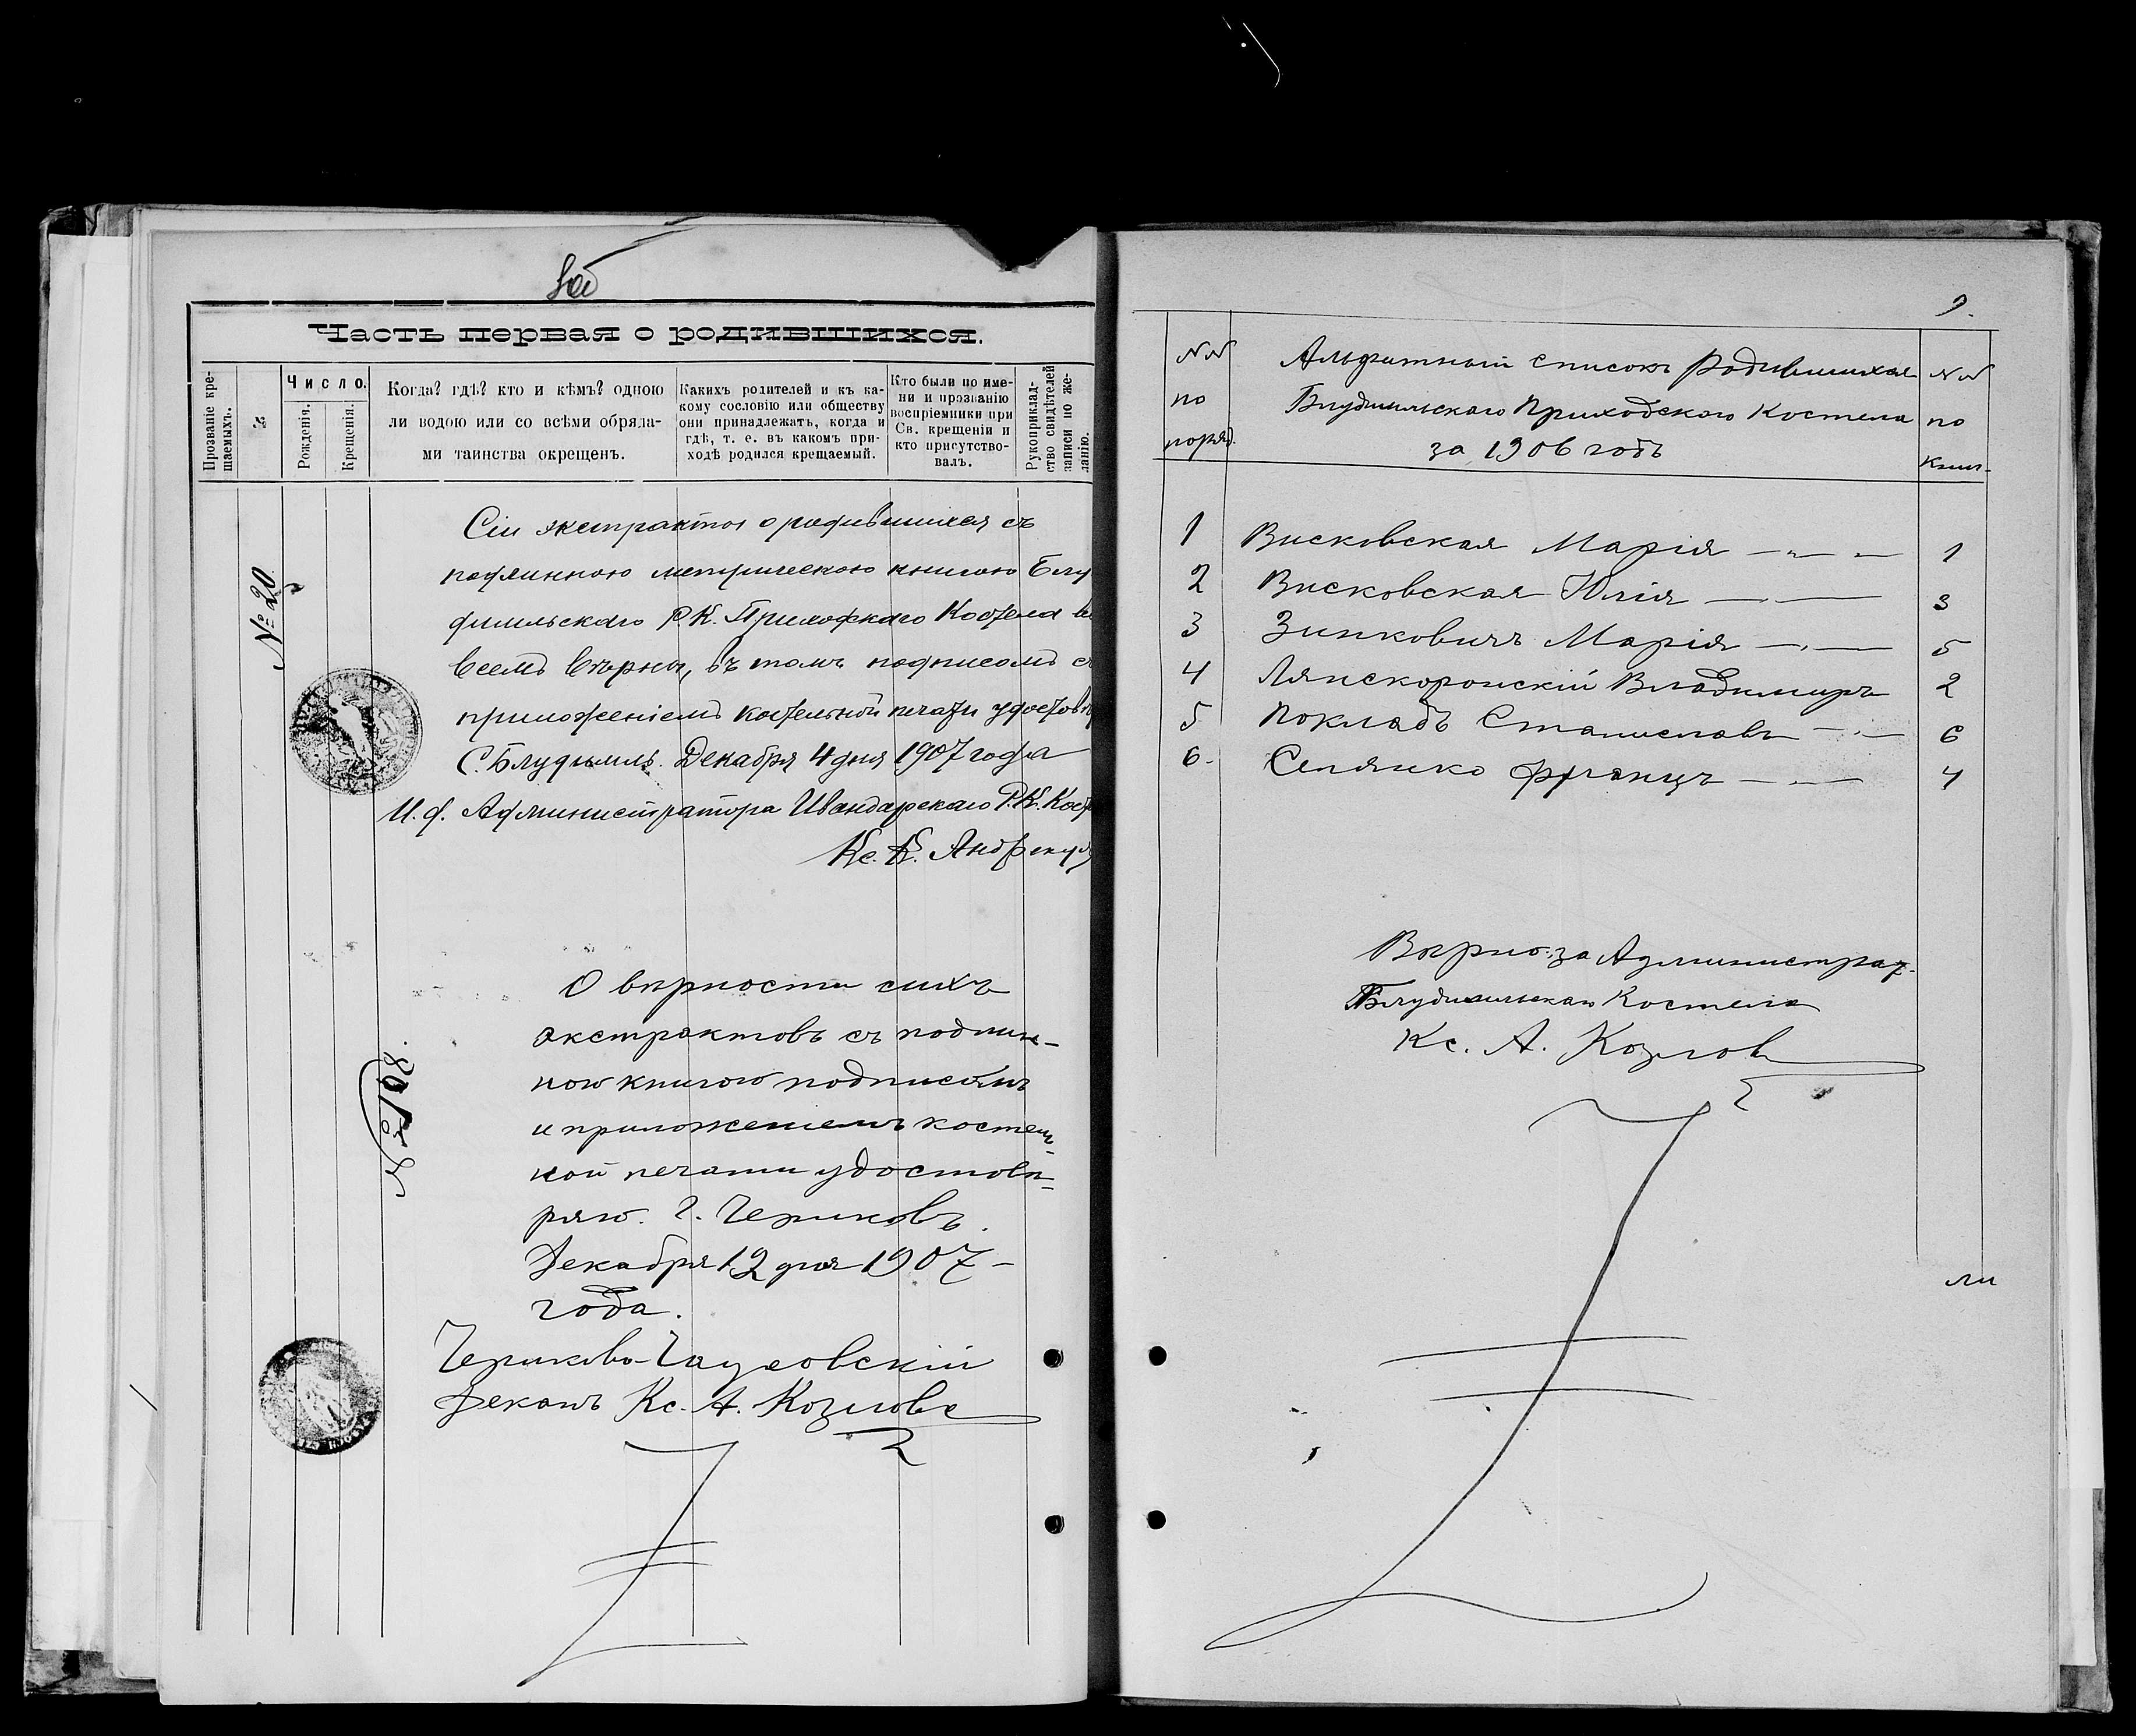 8об
Часть первая о родившихся.
Прозваніе кре-
щаемыхъ.
№
Число.
Рожденія.
Крещенія.
Когда? гдѣ? кто и кѣмъ? одною
ли водою или со всѣми обряда-
ми таинства окрещенъ.
Какихъ родителей и къ ка-
кому сословію или обществу
они принадлежатъ, когда и
гдѣ, т. е. въ какомъ при-
ходѣ родился крещаемый.
Кто были по име-
ни и прозванію
воспріемники при
Св. крещеніи и
кто присутство-
валъ.
Рукоприклад-
ство свидѣтелей
записи по же-
ланію.
№ 20
Сіи экстракты о родившихся съ
подлинною метрическою книгою Блу
димльскаго Р.К. Приходскаго Костела во
всемъ вѣрны, въ томъ подписомъ съ
приложеніемъ костельной печати удостовѣр
С. Блудимль. Декабря 4 дня 1907 года
И. д. Администратора Ивандарскаго Р.К. Кост
Кс. К.
№ 108.
О вѣрности сихъ
экстрактовъ съ подлин-
ною книгою подписомъ
и приложеніемъ костель-
ной печати удостовѣ-
ряю. Г. Чериковъ.
Декабря 12 дня 1907-
года.
Чериково-Чаусовскій
Деканъ Кс. А. Козловс
9.
№№
по
поряд.
Альфатный списокъ родившихся
Блудимльскаго Приходскаго Костела
за 1906 годъ
№№
по
книг.
1 Висковская Марія 1
2 Висковская Юлія 3
3 Зинковичъ Марія 5
4 Лянскоронскій Владимиръ 2
5 Покладъ Станиславъ 6
6. Сепянко Францъ 4
Вѣрно: за Администрат.
Блудимльскаго Костела
Кс. А. Козлов
ли